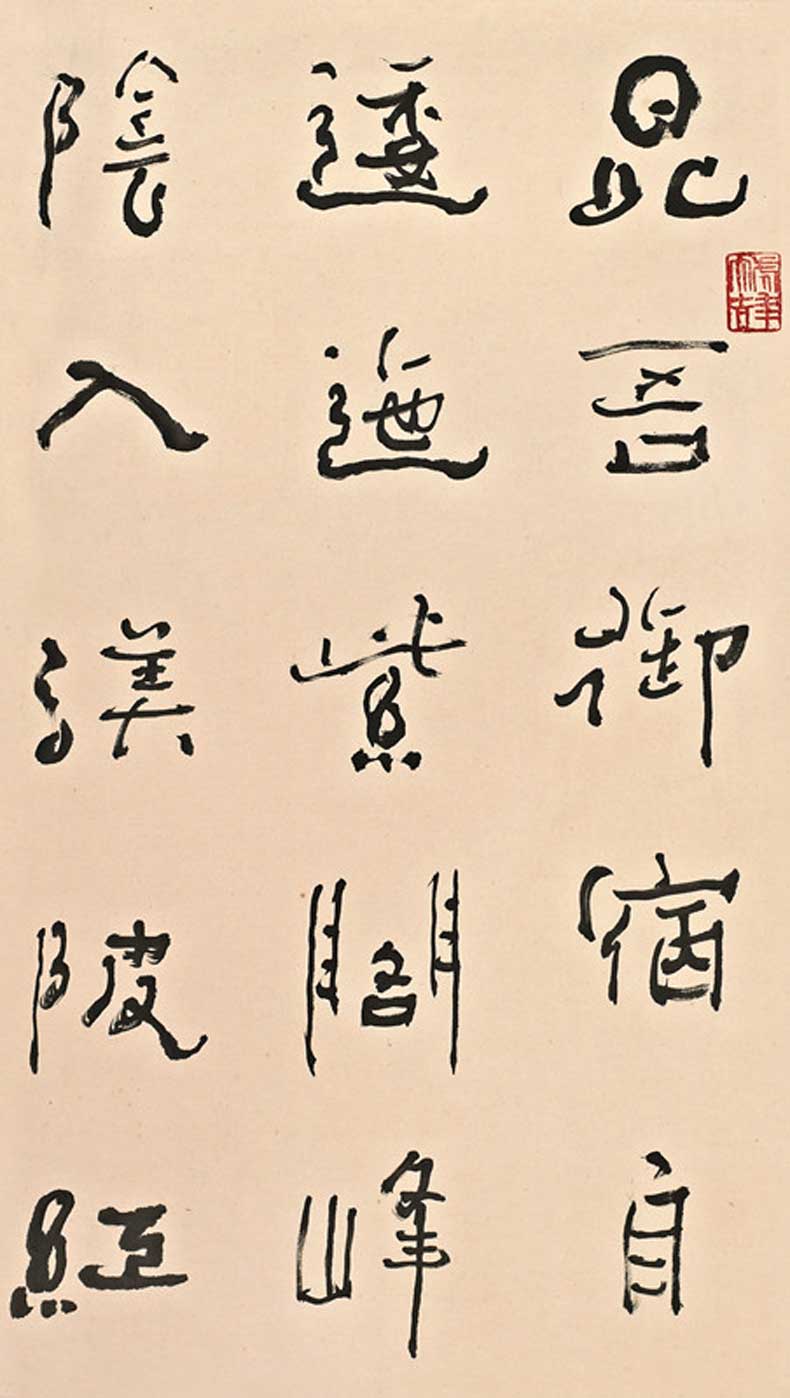 昆吾御宿自
逶迤紫閣峰
陰入渼陂經